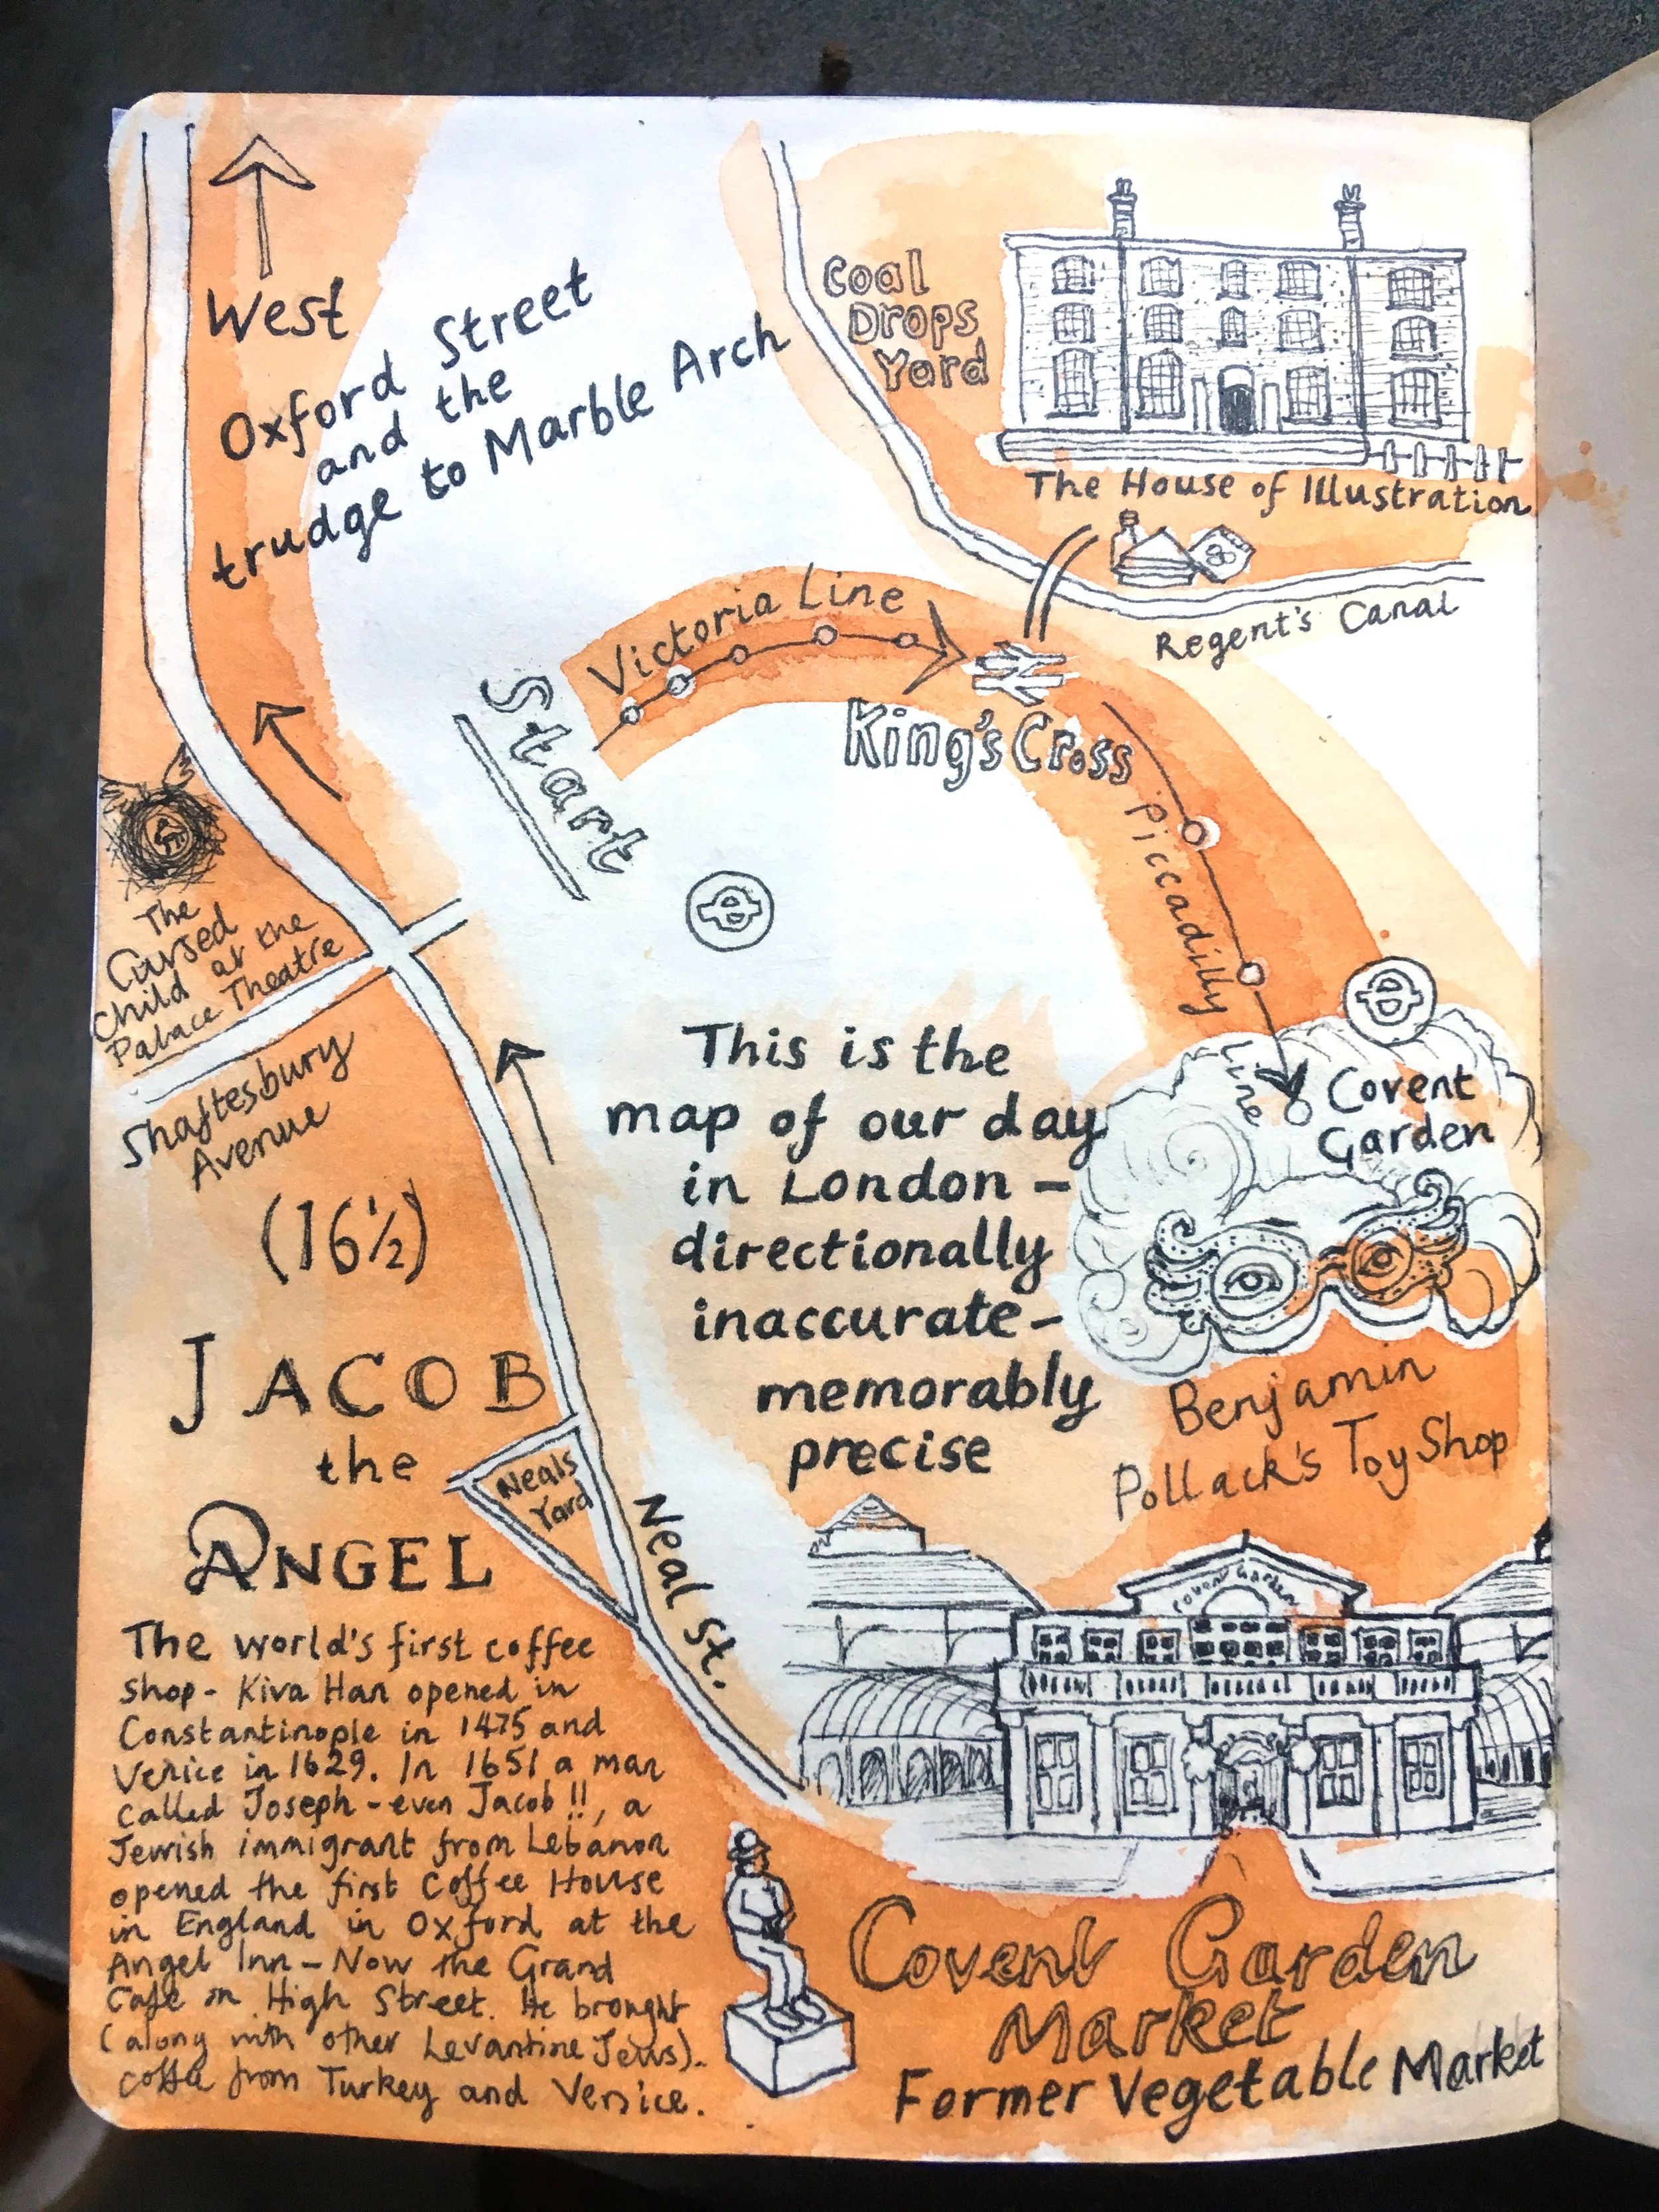 West
Oxford Street
and the
trudge to Marble Arch
Coal
Drops
Yard
The House of Illustration
Regent's Canal
Victoria Line
Start
King's Cross
Piccadilly
Line
Covent
Garden
The
Cursed
Child at the
Palace Theatre
Shaftesbury
Avenue
(16½)
This is the
map of our day
in London –
directionally
inaccurate –
memorably
precise
Benjamin
Pollack's Toy Shop
JACOB
the
ANGEL
Neals
Yard
Neal St.
Covent Garden
The world's first coffee
shop - Kiva Han opened in
Constantinople in 1475 and
Venice in 1629. In 1651 a man
called Joseph - even Jacob !!, a
Jewish immigrant from Lebanon
opened the first Coffee House
in England in Oxford at the
Angel Inn – Now the Grand
Cafe on High Street. He brought
(along with other Levantine Jews).
coffee from Turkey and Venice.
Covent Garden
Market
Former Vegetable Market